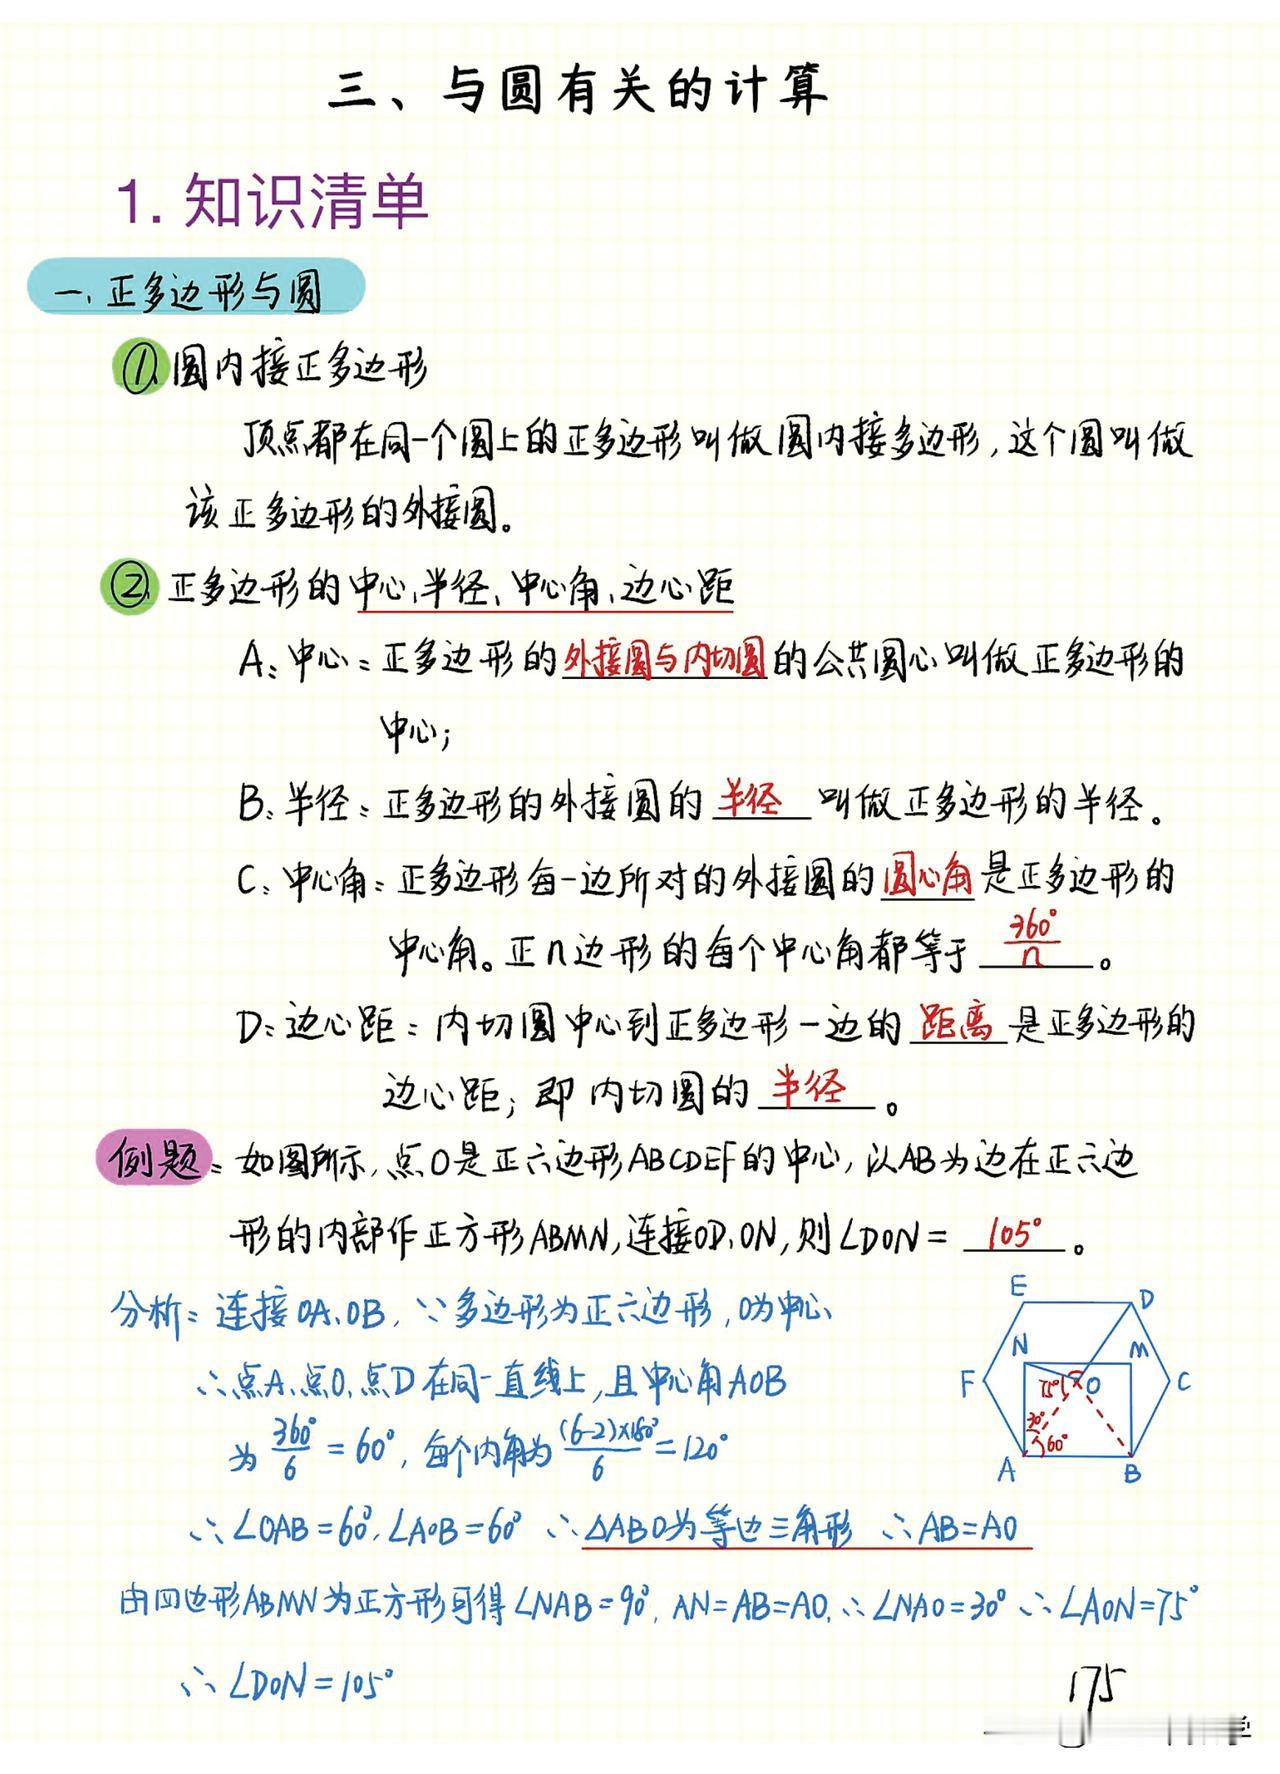 三、与圆有关的计算
1. 知识清单
一、正多边形与圆
①、圆内接正多边形
顶点都在同一个圆上的正多边形叫做圆内接多边形,这个圆叫做
该正多边形的外接圆。
②、正多边形的中心、半径、中心角、边心距
A:中心:正多边形的外接圆与内切圆的公共圆心叫做正多边形的
中心;
B:半径:正多边形的外接圆的 半径 叫做正多边形的半径。
C:中心角:正多边形每一边所对的外接圆的圆心角是正多边形的
中心角。正n边形的每个中心角都等于 360°/n 。
D:边心距:内切圆中心到正多边形一边的 距离 是正多边形的
边心距;即内切圆的 半径 。
例题:如图所示,点O是正六边形ABCDEF的中心,以AB为边在正六边
形的内部作正方形ABMN,连接OD、ON,则∠DON= 105° 。
分析:连接OA、OB,∵多边形为正六边形,O为中心
∴点A、点O、点D在同一直线上,且中心角AOB
为 360°/6 = 60°,每个内角为 (6-2)×180°/6 = 120°
∴∠OAB=60°,∠AOB=60° ∴△ABO为等边三角形 ∴AB=AO
由四边形ABMN为正方形可得∠NAB=90°, AN=AB=AO, ∴∠NAO=30° ∴∠AON=75°
∴∠DON=105°
E
D
N
M
F
75°
O
C
30°
60°
A
B
175